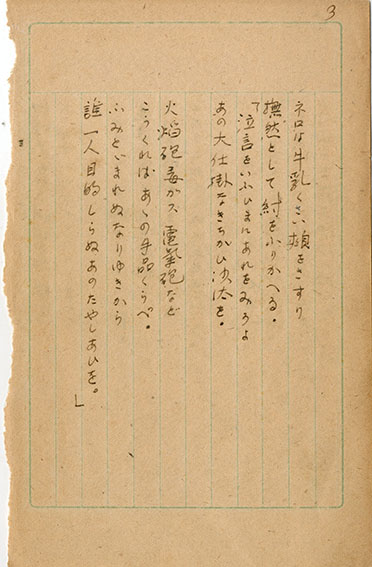 3
ネロは牛乳くさい頬をさすり
撫然として紂をふりかへる。
「泣言をいふひまにあれをみろよ
あの大仕掛なきちがひ沙汰を。
火焔砲毒ガス 電氣砲など
こうくればあゝの手品くらべ。
ふみとゞまれぬなりゆきから
誰一人目的しらぬあのたやしあひを。」